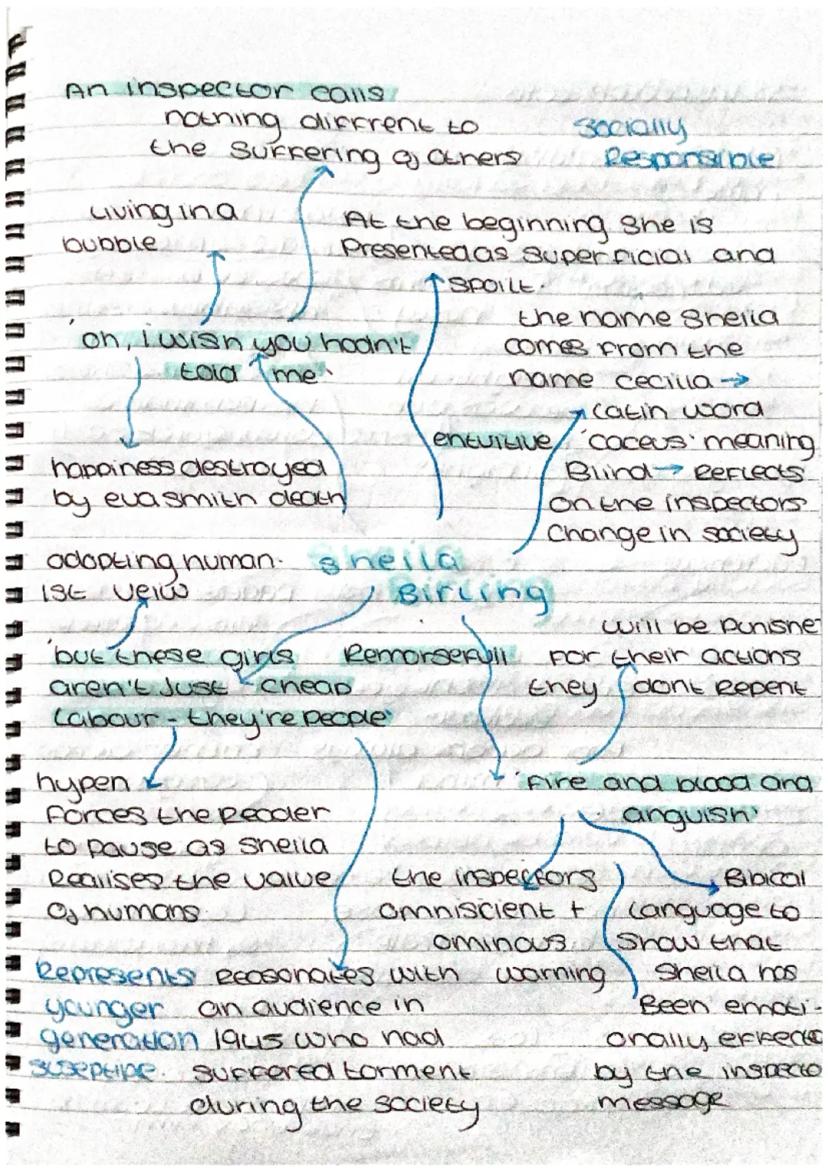 An inspector calls
nothing diffrent to
the suffering of others
Socially
Responsible
Living in a
bubble
At the beginning she is
Presented as superficial and
spoilt.
'oh, i wish you hadn't
told me'
the name Sheila
comes from the
name cecilia →
Latin word
'caceus' meaning
Blind → Reflects
on the inspectors
Change in society
entuitive
happiness destroyed
by eva smith death
Sheila
Birling
adopting human-
ist veiw
'but these girls
aren't Just cheap
labour - they're people'
Remorsefull
will be Punishe
for their actions
they dont Repent
hypen
forces the Reader
to pause as Sheila
Realises the value
of humans
'Fire and blood and
anguish'
the inspectors
omniscient +
ominous
warning
Bibical
language to
show that
Sheila has
Been emoti-
onally effecte
by the inspecto
message
Represents
younger
generation
Reasonates with
an audience in
1945 who had
suffered torment
during the society